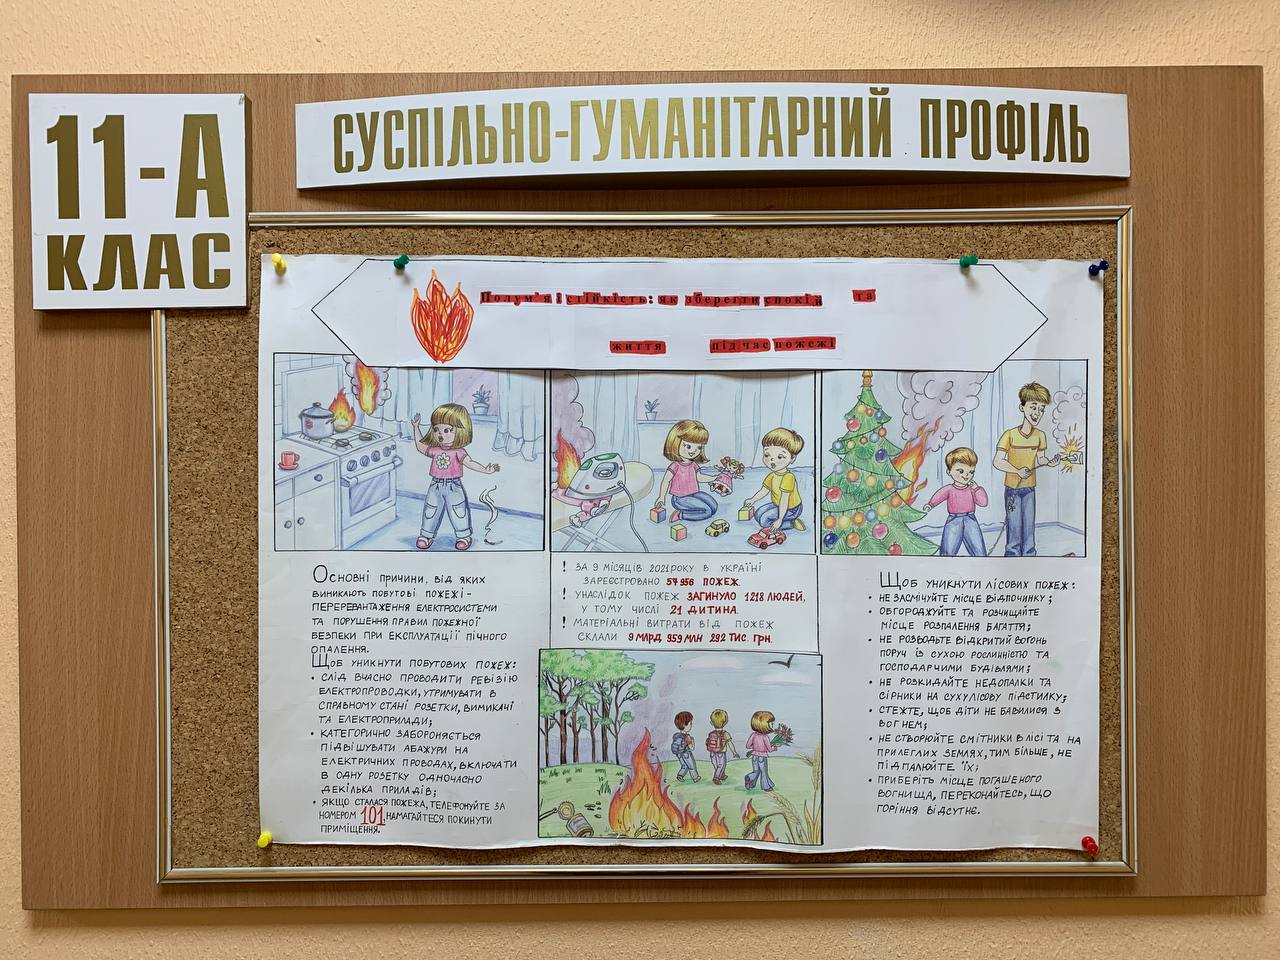 11-А
КЛАС
СУСПІЛЬНО-ГУМАНІТАРНИЙ ПРОФІЛЬ
Полум'я і стійкість: як зберегти спокій та
життя під час пожежі
Основні причини, від яких
виникають побутові пожежі-
перевантаження електросистеми
та порушення правил пожежної
безпеки при експлуатації пічного
опалення.
Щоб уникнути побутових пожеж:
• слід вчасно проводити ревізію
електропроводки, утримувати в
справному стані розетки, вимикачі
та електроприлади;
• категорично забороняється
підвішувати абажури на
електричних проводах, включати
в одну розетку одночасно
декілька приладів;
• якщо сталася пожежа, телефонуйте за
номером 101 намагайтеся покинути
приміщення.
! За 9 місяців 2021 року в Україні
зареєстровано 57 956 пожеж.
! Унаслідок пожеж загинуло 1218 людей,
у тому числі 21 дитина.
! Матеріальні витрати від пожеж
склали 9 млрд 959 млн 292 тис. грн.
Щоб уникнути лісових пожеж:
• не засмічуйте місце відпочинку;
• обгороджуйте та розчищайте
місце розпалення багаття;
• не розводьте відкритий вогонь
поруч із сухою рослинністю та
господарчими будівлями;
• не розкидайте недопалки та
сірники на суху лісову підстилку;
• стежте, щоб діти не бавилися з
вогнем;
• не створюйте смітники в лісі та на
прилеглих землях, тим більше, не
підпалюйте їх;
• приберіть місце погашеного
вогнища, переконайтесь, що
горіння відсутнє.